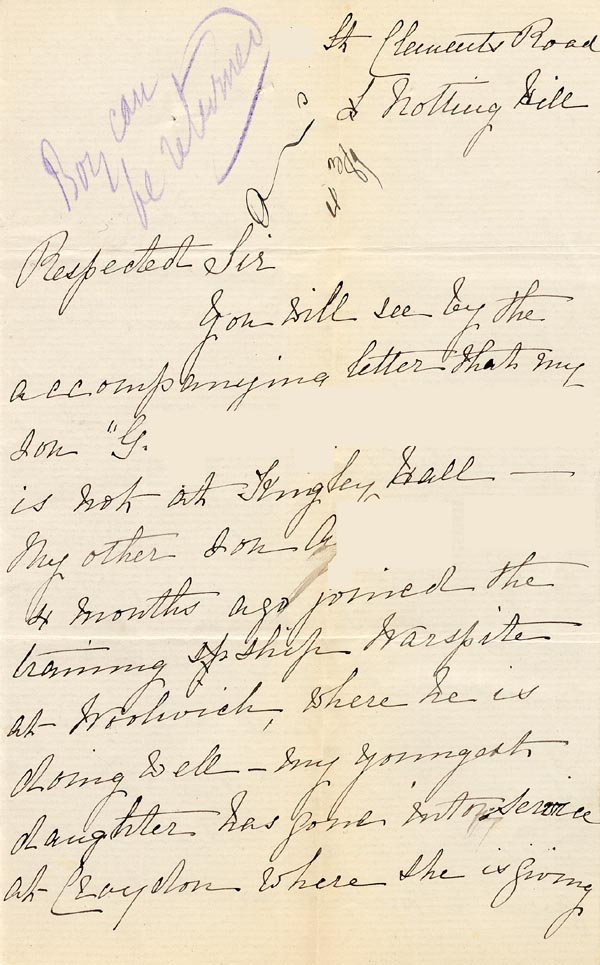 Boy can
be returned
St Clements Road
Notting Hill
Respected Sir
You will see by the
accompanying letter that my
son "G.
is not at Kingley Hall —
My other son A
4 months ago joined the
training ship Warspite
at Woolwich, where he is
doing well – my youngest
daughter has gone into service
at Croydon where she is giving